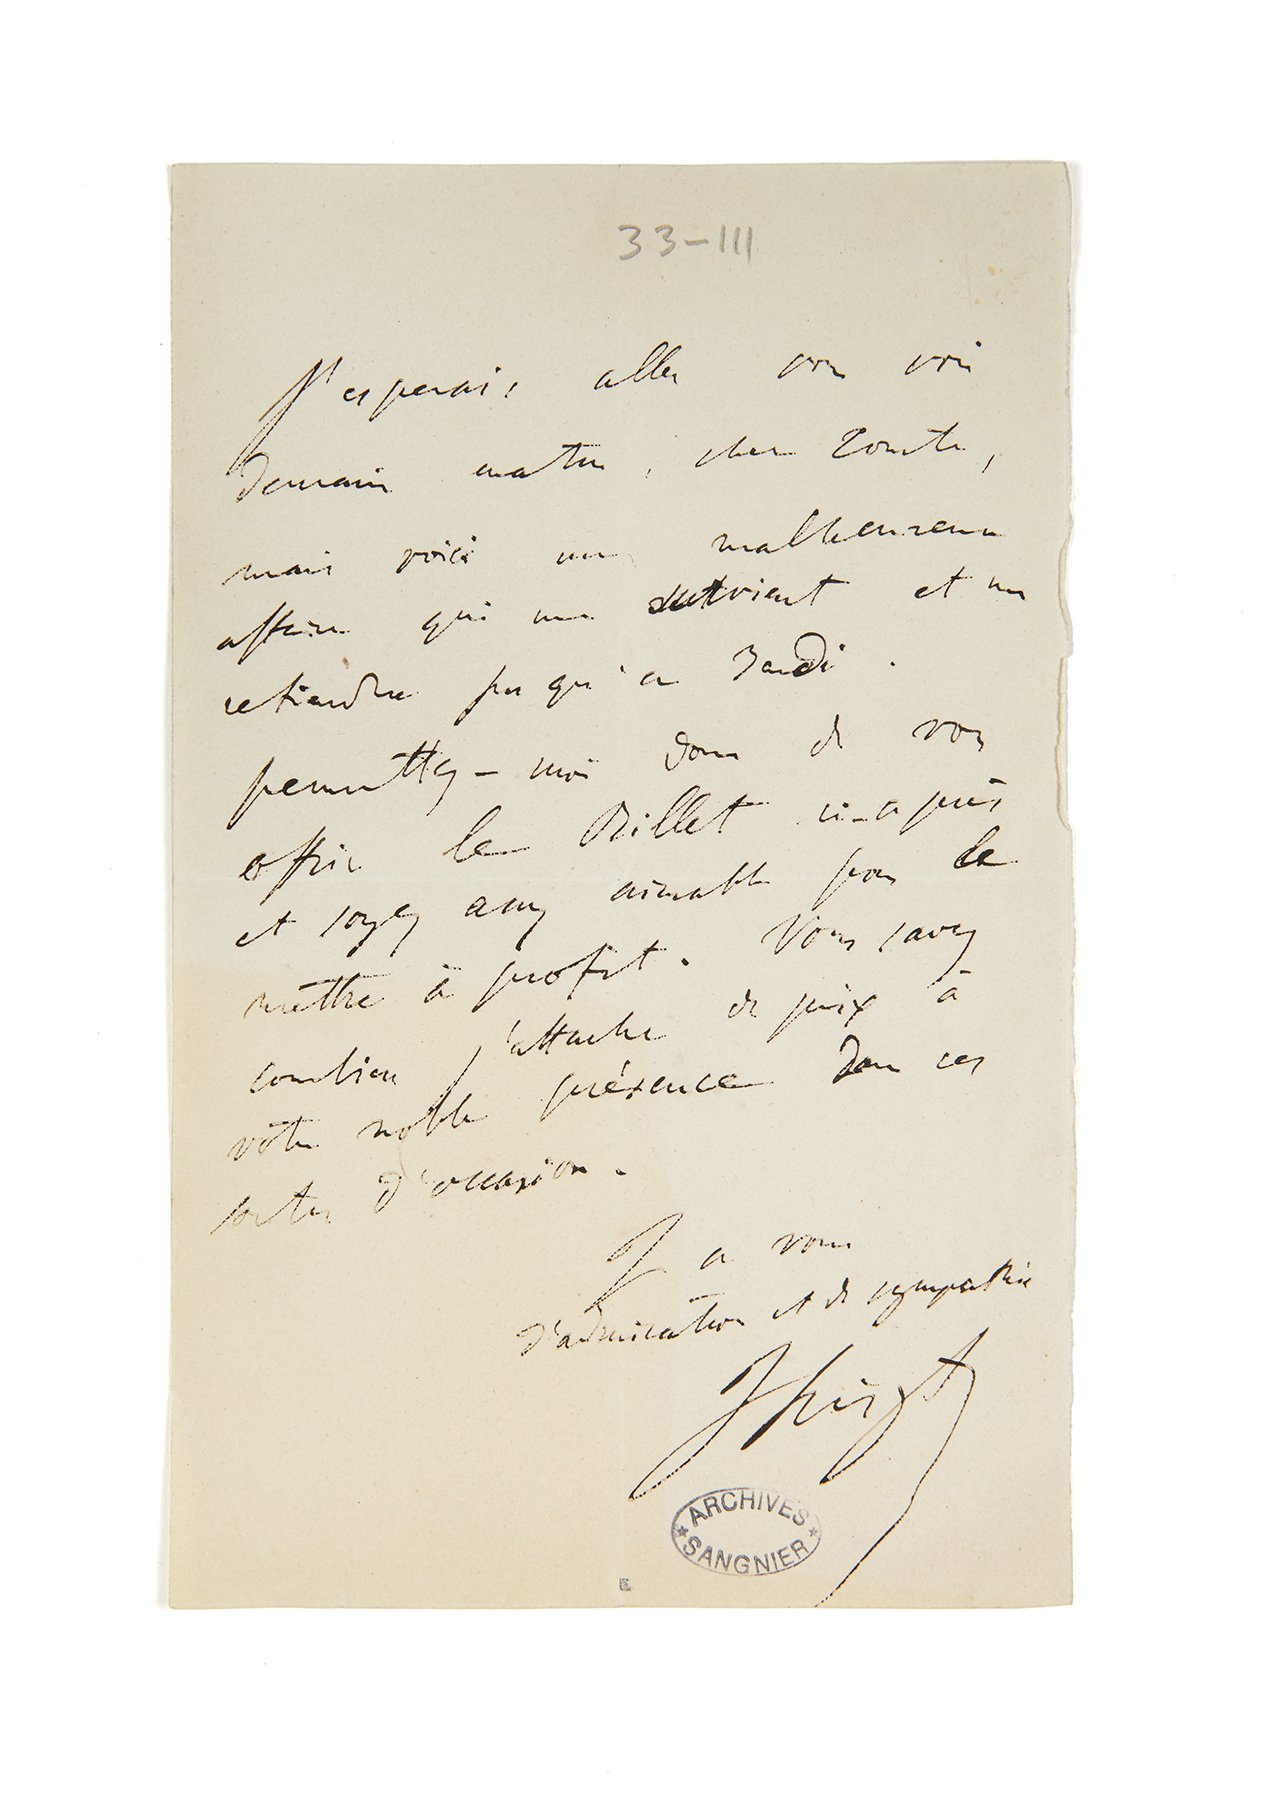 33-III
J'esperais aller vous voir
Demain matin, cher Comte,
mais voici une malheureuse
affaire qui me survient et me
retiendra jusqu'a Jeudi.
permettez-moi donc de vous
offrir le Billet ci-après
et soyez assez aimable pour le
mettre à profit. Vous savez
combien j'attache de prix à
votre noble présence dans ces
sortes d'occasion.
T a vous
d'admiration et de sympathie
F Liszt
ARCHIVES
SANGNIER